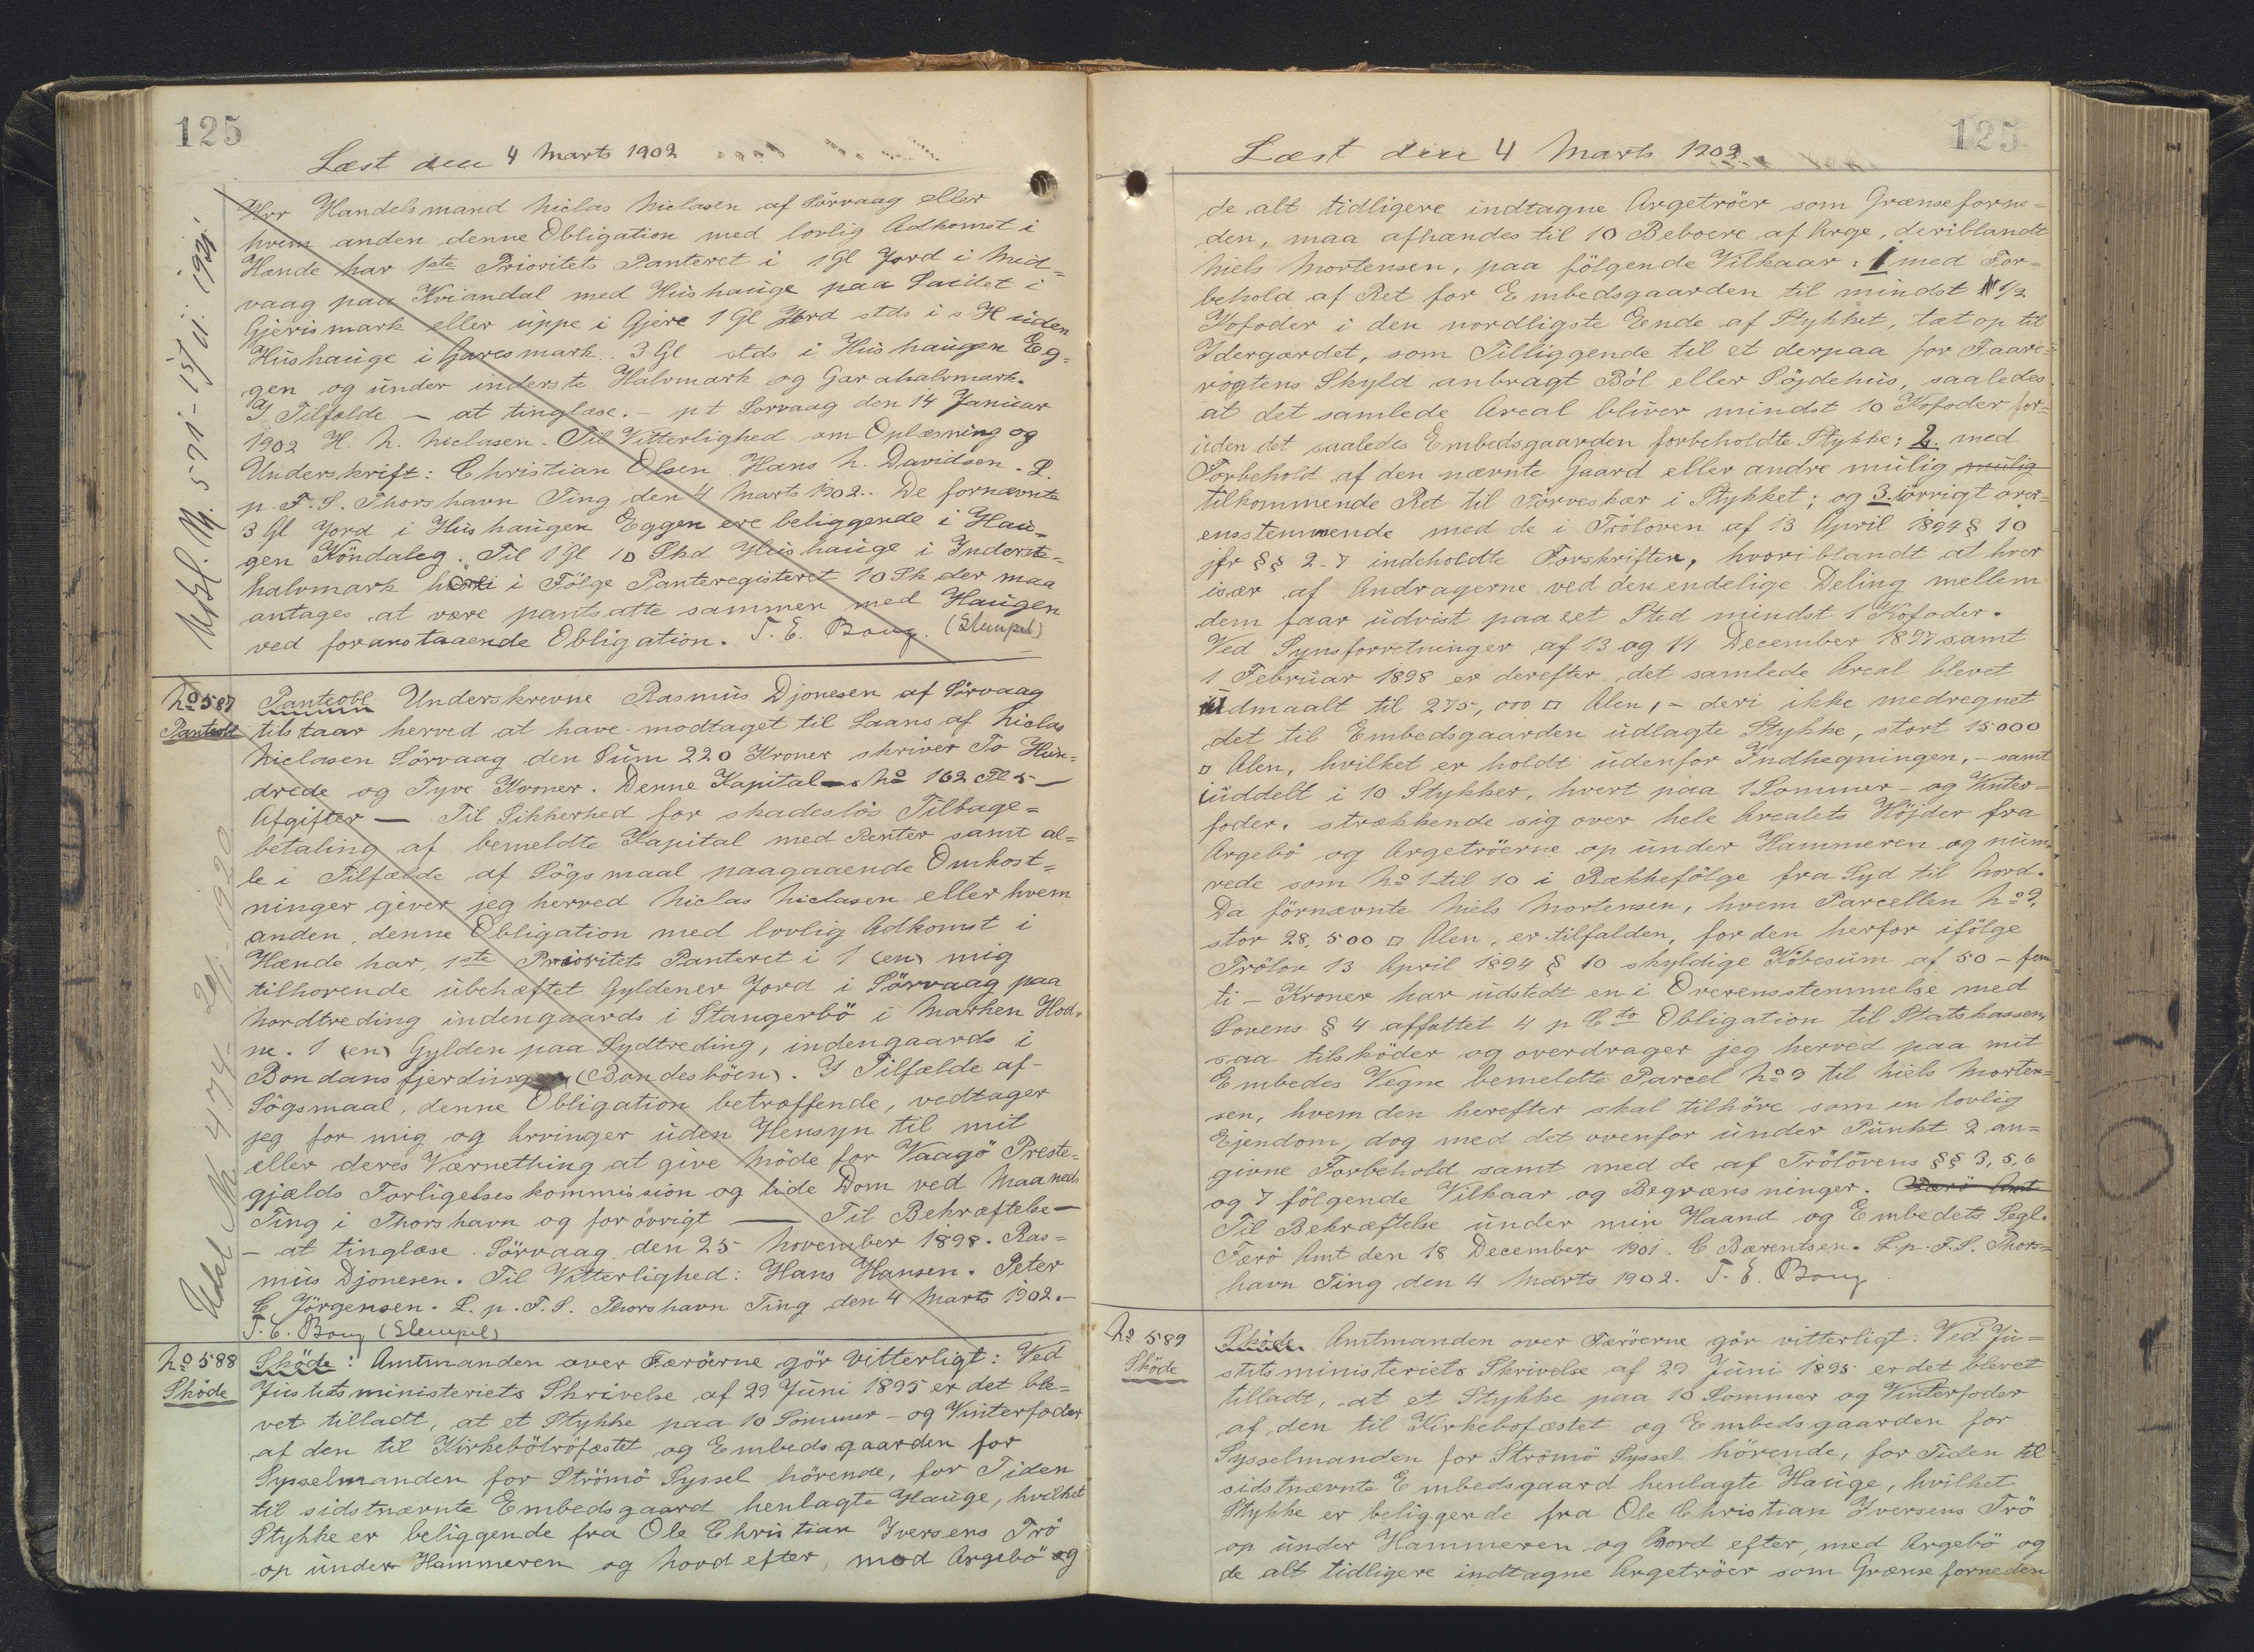 125
Læst den 4 Marts 1902
Hrr Handelsmand Niclas Niclasen af Sörvaag eller
hvem anden denne Obligation med lovlig Adkomst i
Hænde har 1ste Prioritets Panteret i 1 Gl Jord i Mid=
vaag paa Kviandal med Hushauge paa Landet i
Gjerismark eller uppe i Gjere 1 Gl Jord stds i s H uden
Hushauge i Garesmark. 3 Gl stds i Hushaugen Eg=
gen og under inderste Halvmark og Garahalvmark.
I Tilfælde — at tinglæse. — p t Sorvaag den 14 Januar
1902 H. N. Niclasen. Til Vitterlighed om Oplæsning og
Underskrift: Christian Olsen Hans N. Davidsen. L.
p. F. S. Thorshavn Ting den 4 Marts 1902.. De fornævnte
3 Gl Jord i Hushaugen Eggen ere beliggende i Hau=
gen Köndaleg. Til 1 Gl 10 Skd Hushauge i Inderst=
halvmark i Følge Panteregisteret 10 Sk der maa
antages at være pantsatte sammen med Haugen
ved foranstaaende Obligation. T. E. Boug. (Stempel)
No 587
Panteobl
Panteobl Underskrevne Rasmus Djonesen af Sörvaag
tilstaar herved at have modtaget til Laans af Niclas
Niclasen Sörvaag den Sum 220 Kroner skriver To Hun=
drede og Tyve Kroner. Denne Kapital — No 162 Fl 5 —
Afgifter — Til Sikkerhed for skadeslös Tilbage=
betaling af bemeldte Kapital med Renter samt al=
le i Tilfælde af Sögsmaal paagaaende Omkost=
ninger giver jeg herved Niclas Niclasen eller hvem
anden, denne Obligation med lovlig Adkomst i
Hænde har, 1ste Prioritets Panteret i 1 (en) mig
tilhorende ubehæftet Gyldener Jord i Sörvaag paa
Nordtreding indengaards i Stangerbö i Marken Hod=
ne. 1 (en) Gylden paa Sydtreding, indengaards i
Bondansfjerding (Bondesböen). I Tilfælde af
Sögsmaal, denne Obligation betræffende, vedtager
jeg for mig og Arvinger uden Hensyn til mit
eller deres Værnething at give Möde for Vaagö Preste=
gjælds Forligelseskommission og lide Dom ved Maaneds
Ting i Thorshavn og forövrigt — Til Bekræftelse —
— at tinglæse. Sörvaag den 25 November 1898. Ras=
mus Djonesen. Til Vitterlighed: Hans Hansen. Peter
C Jörgensen. L. p. F. S. Thorshavn Ting den 4 Marts 1902.—
T. E. Boug (Stempel)
No 588
Sköde
Sköde: Amtmanden over Færöerne gör vitterligt: Ved
Justitsministeriets Skrivelse af 29 Juni 1895 er det ble=
vet tilladt, at et Stykke paa 10 Sommer- og Vinterfoder
af den til Kirkebötröfæstet og Embedsgaarden for
Sysselmanden for Strömö Syssel hörende, for Tiden
til sidstnævnte Embedsgaard henlagte Hauge, hvilket
Stykke er beliggende fra Ole Christian Iversens Trö
op under Hammeren og Nord efter, med Argebö og
125
Læst den 4 Marts 1902
de alt tidligere indtagne Argetröer som Grænseforne=
den, maa afhændes til 10 Beboere af Arge, deriblandt
Niels Mortensen, paa fölgende Vilkaar: 1 med For=
behold af Ret for Embedsgaarden til mindst 1/2
Kofoder i den nordligste Ende af Stykket, tæt op til
Idergærdet, som Tilliggende til et derpaa for Faare=
rögtens Skyld anbragt Ból eller Söjdehus, saaledes
at det samlede Areal bliver mindst 10 Kofoder for=
uden det saaledes Embedsgaarden forbeholdte Stykke; 2. med
Forbehold af den nævnte Gaard eller andre mulig mulig
tilkommende Ret til Törveskær i Stykket; og 3. iövrigt over=
ensstemmende med de i Tröloven af 13 April 1894 § 10
jfr §§ 2-7 indeholdte Forskrifter, hvoriblandt at hver
især af Andragerne ved den endelige Deling mellem
dem faar udvist paa eet Sted mindst 1 Kofoder.
Ved Synsforretninger af 13 og 14 December 1897 samt
1 Februar 1898 er derefter det samlede Areal blevet
udmaalt til 275,000 □ Alen, — deri ikke medregnet
det til Embedsgaarden udlagte Stykke, stort 15000
□ Alen, hvilket er holdt udenfor Indhegningen, — samt
uddelt i 10 Stykker, hvert paa 1 Sommer- og Vinter=
foder, strækkende sig over hele Arealets Höjder fra
Argebö og Argetröerne op under Hammeren og num=
rede som No 1 til 10 i Rækkefölge fra Syd til Nord.
Da fornævnte Niels Mortensen, hvem Parcellen No 9,
stor 28,500 □ Alen, er tilfalden, for den herfor ifölge
Trölov 13 April 1894 § 10 skyldige Köbesum af 50 — fem
ti — Kroner har udstedt en i Overensstemmelse med
Lovens § 4 affattet 4 p Cto Obligation til Statskassen,
saa tilsköder og overdrager jeg herved paa mit
Embedes Vegne bemeldte Parcel No 9 til Niels Morten=
sen, hvem den herefter skal tilhöre som en lovlig
Ejendom, dog med det ovenfor under Punkt 2 an=
givne Forbehold samt med de af Trölovens §§ 3, 5, 6
og 7 fölgende Vilkaar og Begrænsninger. Færö Amt
Til Bekræftelse under min Haand og Embedets Segl.
Færö Amt den 18 December 1901. C. Bærentsen. L. p. F. S. Thors=
havn Ting den 4 Marts 1902. T. E. Boug
No 589
Sköde
Sköde. Amtmanden over Færöerne gör vitterligt: Ved Ju=
stitsministeriets Skrivelse af 29 Juni 1895 er det blevet
tilladt, at et Stykke paa 10 Sommer og Vinterfoder
af den til Kirkebofæstet og Embedsgaarden for
Sysselmanden for Strömö Syssel hörende, for Tiden til
sidstnævnte Embedsgaard henlagte Hauge, hvilket
Stykke er beliggende fra Ole Christian Iversens Trö
op under Hammeren og Nord efter, med Argebö og
de alt tidligere indtagne Argetröer som Grænse forneden